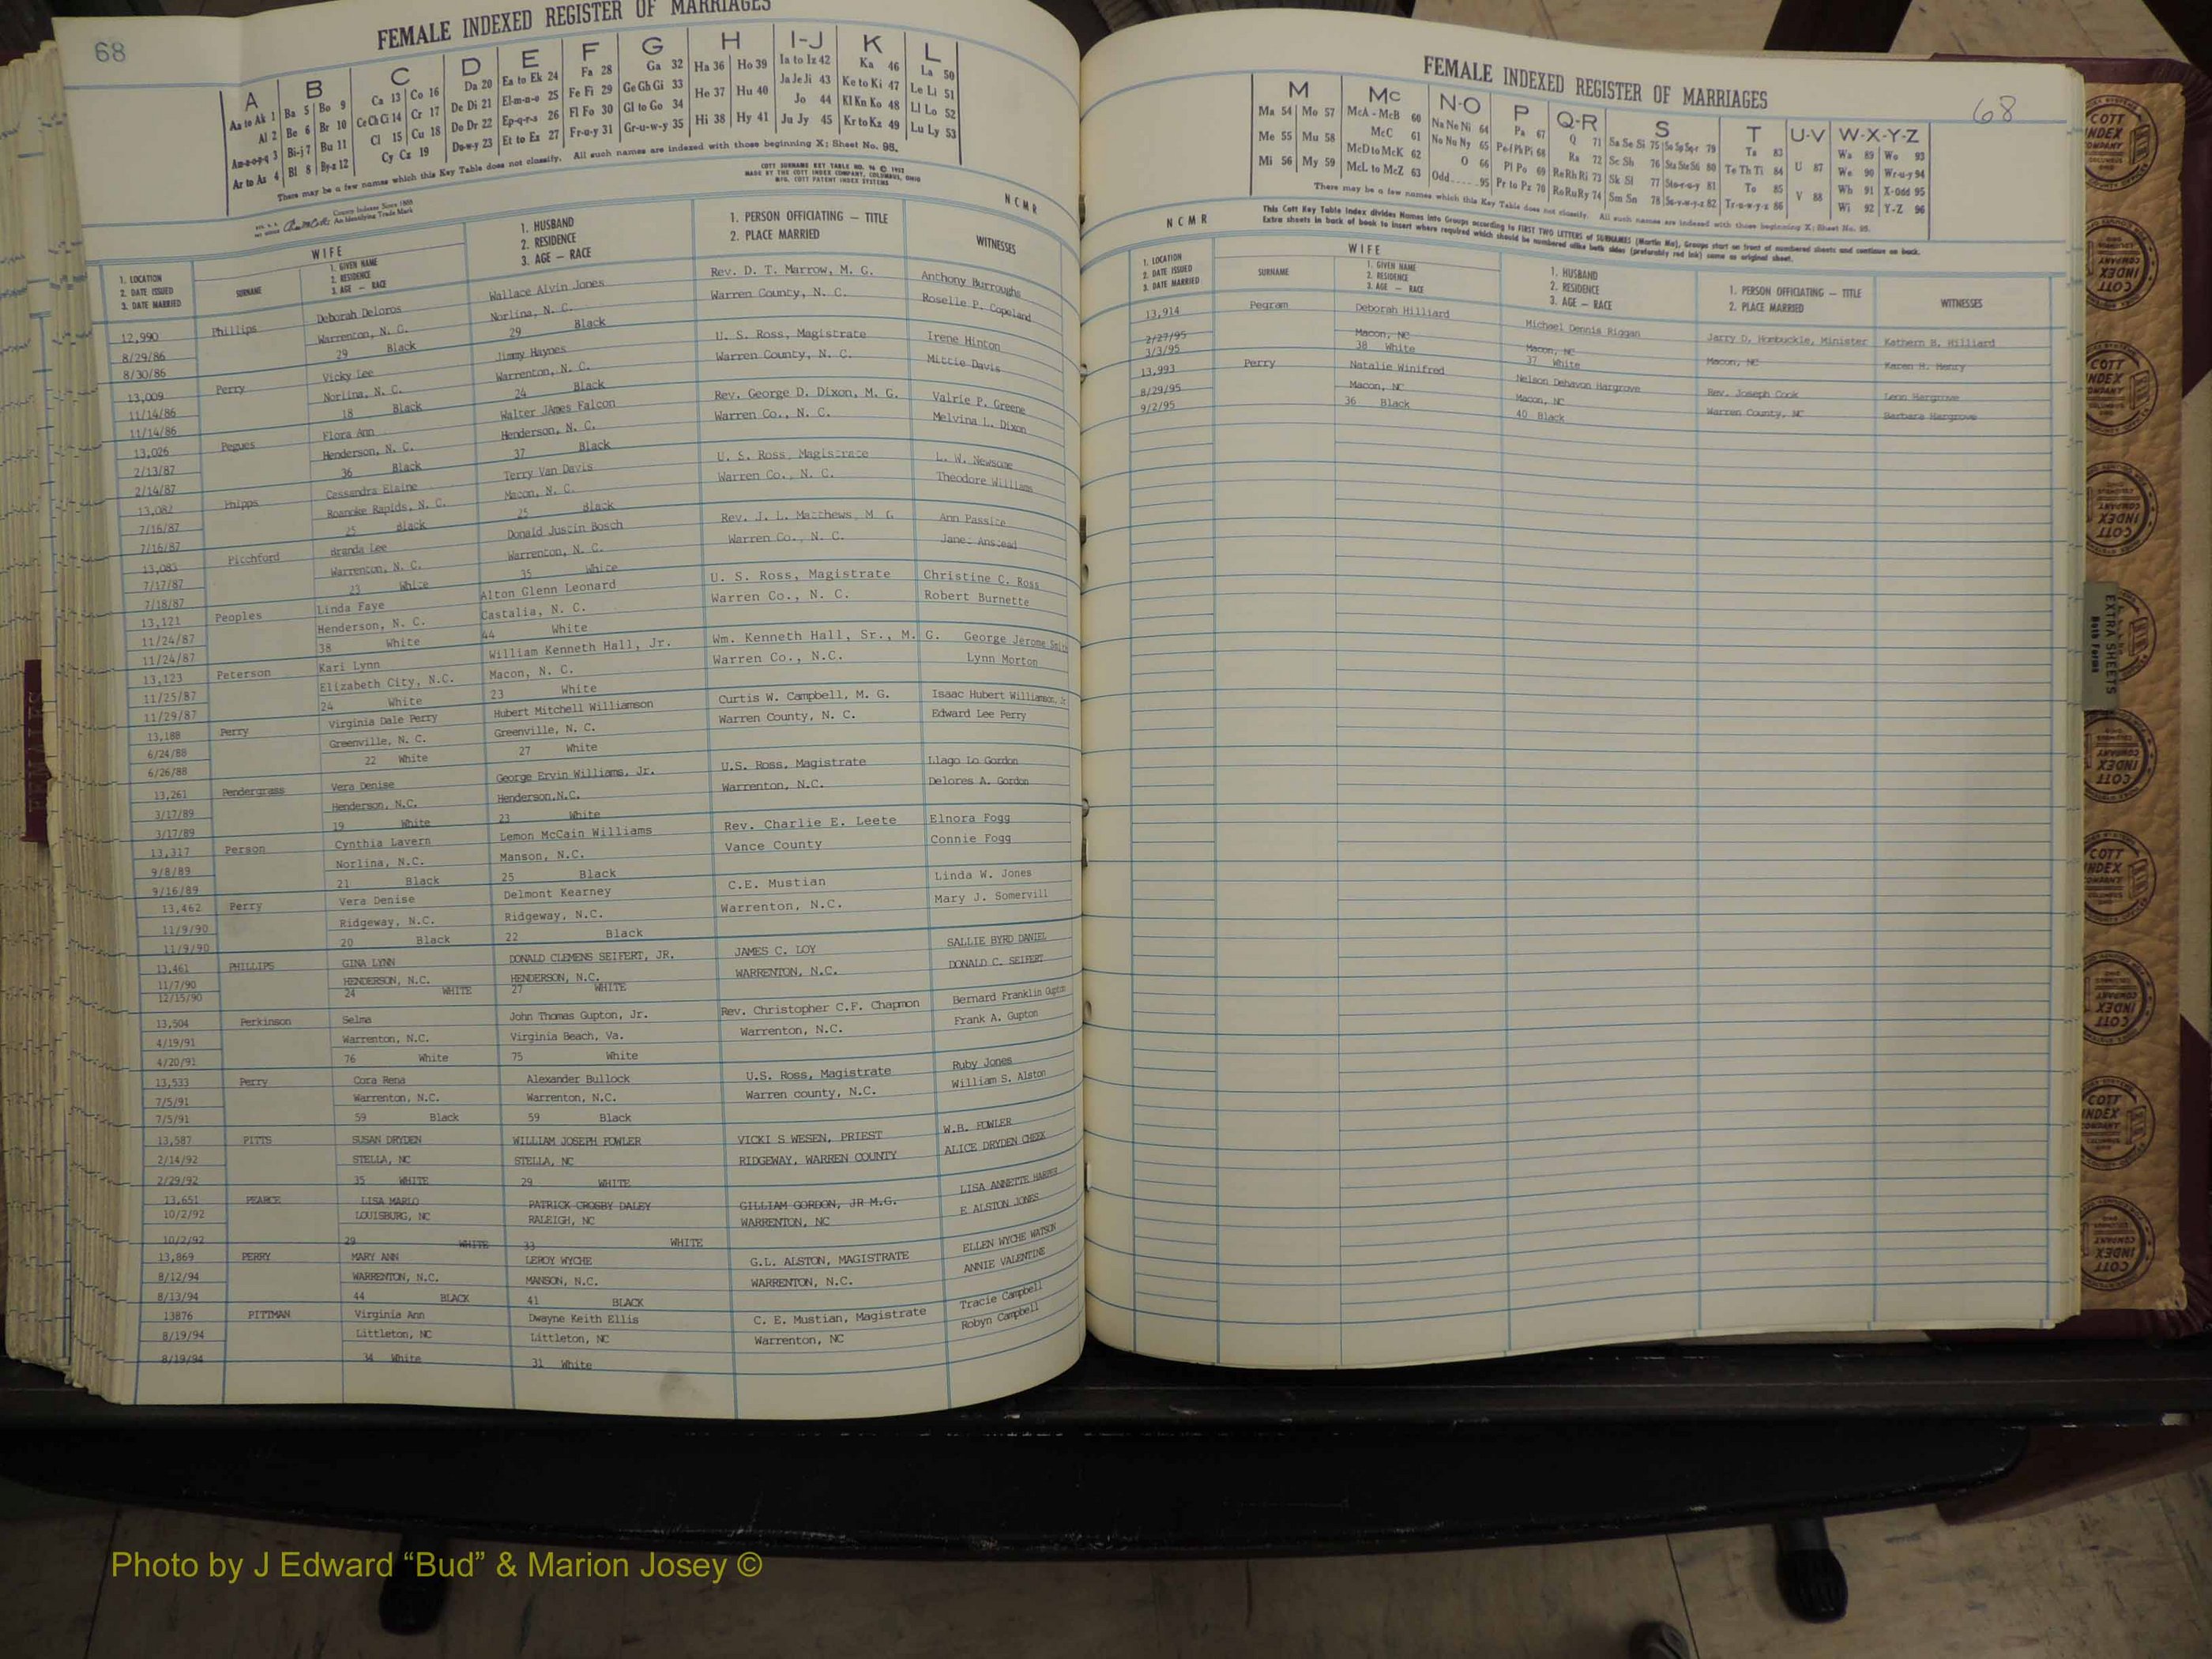 68
FEMALE INDEXED REGISTER OF MARRIAGES
A B C D E F G H I-J K L
Aa to Ak 1 Ba 5 Bo 9 Ca 13 Co 16 Da 20 Ea to Ek 24 Fa 28 Ga 32 Ha 36 Ho 39 Ia to Iz 42 Ka 46 La 50
Al 2 Be 6 Br 10 Ce Ch Ci 14 Cr 17 De Di 21 El-m-n-o 25 Fe Fi 29 Ge Gh Gi 33 He 37 Hu 40 Ja Je Ji 43 Ke to Ki 47 Le Li 51
Am-n-o-p-q 3 Bi-j 7 Bu 11 Cl 15 Cu 18 Do Dr 22 Ep-q-r-s 26 Fl Fo 30 Gl to Go 34 Hi 38 Hy 41 Jo 44 Kl Kn Ko 48 Ll Lo 52
Ar to Az 4 Bl 8 By-z 12 Cy Cz 19 Du-w-y 23 Et to Ez 27 Fr-u-y 31 Gr-u-w-y 35 Ju Jy 45 Kr to Kz 49 Lu Ly 53
There may be a few names which this Key Table does not classify. All such names are indexed with those beginning X; Sheet No. 95.
COTT SURNAME KEY TABLE NO. 96 © 1952
MADE BY THE COTT INDEX COMPANY, COLUMBUS, OHIO
MFG. COTT PATENT INDEX SYSTEMS
County Indexes Since 1888
An Identifying Trade Mark
N C M R
1. LOCATION
2. DATE ISSUED
3. DATE MARRIED
WIFE
SURNAME
1. GIVEN NAME
2. RESIDENCE
3. AGE — RACE
1. HUSBAND
2. RESIDENCE
3. AGE — RACE
1. PERSON OFFICIATING — TITLE
2. PLACE MARRIED
WITNESSES
12,990 Phillips Deborah Deloros Wallace Alvin Jones Rev. D. T. Marrow, M. G. Anthony Burroughs
8/29/86 Warrenton, N. C. Norlina, N. C. Warren County, N. C. Roselle P. Copeland
8/30/86 29 Black 29 Black
13,009 Perry Vicky Lee Jimmy Haynes U. S. Ross, Magistrate Irene Hinton
11/14/86 Norlina, N. C. Warrenton, N. C. Warren County, N. C. Mittie Davis
11/14/86 18 Black 24 Black
13,026 Pegues Flora Ann Walter JAmes Falcon Rev. George D. Dixon, M. G. Valrie P. Greene
2/13/87 Henderson, N. C. Henderson, N. C. Warren Co., N. C. Melvina L. Dixon
2/14/87 36 Black 37 Black
13,082 Phipps Cassandra Elaine Terry Van Davis U. S. Ross, Magistrate L. W. Newsome
7/16/87 Roanoke Rapids, N. C. Macon, N. C. Warren Co., N. C. Theodore Williams
7/16/87 25 Black 25 Black
13,083 Pitchford Branda Lee Donald Justin Bosch Rev. J. L. Matthews, M G Ann Passice
7/17/87 Warrenton, N. C. Warrenton, N. C. Warren Co., N. C. Janet Anstead
7/18/87 23 White 35 White
13,121 Peoples Linda Faye Alton Glenn Leonard U. S. Ross, Magistrate Christine C. Ross
11/24/87 Henderson, N. C. Castalia, N. C. Warren Co., N. C. Robert Burnette
11/24/87 38 White 44 White
13,123 Peterson Kari Lynn William Kenneth Hall, Jr. Wm. Kenneth Hall, Sr., M. G. George Jerome Smith
11/25/87 Elizabeth City, N.C. Macon, N. C. Warren Co., N.C. Lynn Morton
11/29/87 24 White 23 White
13,188 Perry Virginia Dale Perry Hubert Mitchell Williamson Curtis W. Campbell, M. G. Isaac Hubert Williamson, Jr
6/24/88 Greenville, N. C. Greenville, N. C. Warren County, N. C. Edward Lee Perry
6/26/88 22 White 27 White
13,261 Pendergrass Vera Denise George Ervin Williams, Jr. U.S. Ross, Magistrate Llago Lo Gordon
3/17/89 Henderson, N.C. Henderson,N.C. Warrenton, N.C. Delores A. Gordon
3/17/89 19 White 23 White
13,317 Person Cynthia Lavern Lemon McCain Williams Rev. Charlie E. Leete Elnora Fogg
9/8/89 Norlina, N.C. Manson, N.C. Vance County Connie Fogg
9/16/89 21 Black 25 Black
13,462 Perry Vera Denise Delmont Kearney C.E. Mustian Linda W. Jones
11/9/90 Ridgeway, N.C. Ridgeway, N.C. Warrenton, N.C. Mary J. Somervill
11/9/90 20 Black 22 Black
13,461 PHILLIPS GINA LYNN DONALD CLEMENS SEIFERT, JR. JAMES C. LOY SALLIE BYRD DANIEL
11/7/90 HENDERSON, N.C. HENDERSON, N.C. WARRENTON, N.C. DONALD C. SEIFERT
12/15/90 24 WHITE 27 WHITE
13,504 Perkinson Selma John Thomas Gupton, Jr. Rev. Christopher C.F. Chapmon Bernard Franklin Gupton
4/19/91 Warrenton, N.C. Virginia Beach, Va. Warrenton, N.C. Frank A. Gupton
4/20/91 76 White 75 White
13,533 Perry Cora Rena Alexander Bullock U.S. Ross, Magistrate Ruby Jones
7/5/91 Warrenton, N.C. Warrenton, N.C. Warren county, N.C. William S. Alston
7/5/91 59 Black 59 Black
13,587 PITTS SUSAN DRYDEN WILLIAM JOSEPH FOWLER VICKI S WESEN, PRIEST W.B. FOWLER
2/14/92 STELLA, NC STELLA, NC RIDGEWAY, WARREN COUNTY ALICE DRYDEN CHEEK
2/29/92 35 WHITE 29 WHITE
13,651 PEARCE LISA MARLO PATRICK CROSBY DALEY GILLIAM GORDON, JR M.G. LISA ANNETTE HARPER
10/2/92 LOUISBURG, NC RALEIGH, NC WARRENTON, NC E ALSTON JONES
10/2/92 29 WHITE 33 WHITE
13,869 PERRY MARY ANN LEROY WYCHE G.L. ALSTON, MAGISTRATE ELLEN WYCHE WATSON
8/12/94 WARRENTON, N.C. MANSON, N.C. WARRENTON, N.C. ANNIE VALENTINE
8/13/94 44 BLACK 41 BLACK
13876 PITTMAN Virginia Ann Dwayne Keith Ellis C. E. Mustian, Magistrate Tracie Campbell
8/19/94 Littleton, NC Littleton, NC Warrenton, NC Robyn Campbell
8/19/94 34 White 31 White
FEMALE INDEXED REGISTER OF MARRIAGES
68
M Mc N-O P Q-R S T U-V W-X-Y-Z
Ma 54 Mo 57 McA - McB 60 Na Ne Ni 64 Pa 67 Q 71 Sa Se Si 75 So Sp Sq-r 79 Ta 83 U 87 Wa 89 Wo 93
Me 55 Mu 58 McC 61 No Nu Ny 65 Pe-f Ph Pi 68 Ra 72 Sc Sh 76 Sta Ste S6 80 Te Th Ti 84 V 88 We 90 Wr-u-y 94
Mi 56 My 59 McD to McK 62 O 66 Pl Po 69 Re Rh Ri 73 Sk Sl 77 Sto-r-u-y 81 To 85 Wh 91 X-Odd 95
McL to McZ 63 Odd......95 Pr to Pz 70 Ro Ru Ry 74 Sm Sn 78 Su-v-w-y-z 82 Tr-u-w-y-z 86 Wi 92 Y-Z 96
There may be a few names which this Key Table does not classify. All such names are indexed with those beginning X; Sheet No. 95.
This Cott Key Table Index divides Names into Groups according to FIRST TWO LETTERS of SURNAMES (Martin Ma), Groups start on front of numbered sheets and continue on back.
Extra sheets in back of book to insert where required which should be numbered alike both sides (preferably red ink) same as original sheet.
N C M R
1. LOCATION
2. DATE ISSUED
3. DATE MARRIED
WIFE
SURNAME
1. GIVEN NAME
2. RESIDENCE
3. AGE — RACE
1. HUSBAND
2. RESIDENCE
3. AGE — RACE
1. PERSON OFFICIATING — TITLE
2. PLACE MARRIED
WITNESSES
13,914 Pegram Deborah Hilliard Michael Dennis Riggan Jarry D. Hombuckle, Minister Kathern B. Hilliard
2/27/95 Macon, NC Macon, NC Macon, NC Karen H. Henry
3/3/95 38 White 37 White
13,993 Perry Natalie Winifred Nelson Dehavon Hargrove Rev. Joseph Cook Leon Hargrove
8/29/95 Macon, NC Macon, NC Warren County, NC Barbara Hargrove
9/2/95 36 Black 40 Black
EXTRA SHEETS
Both Forms
COTT
INDEX
COMPANY
Photo by J Edward “Bud” & Marion Josey ©